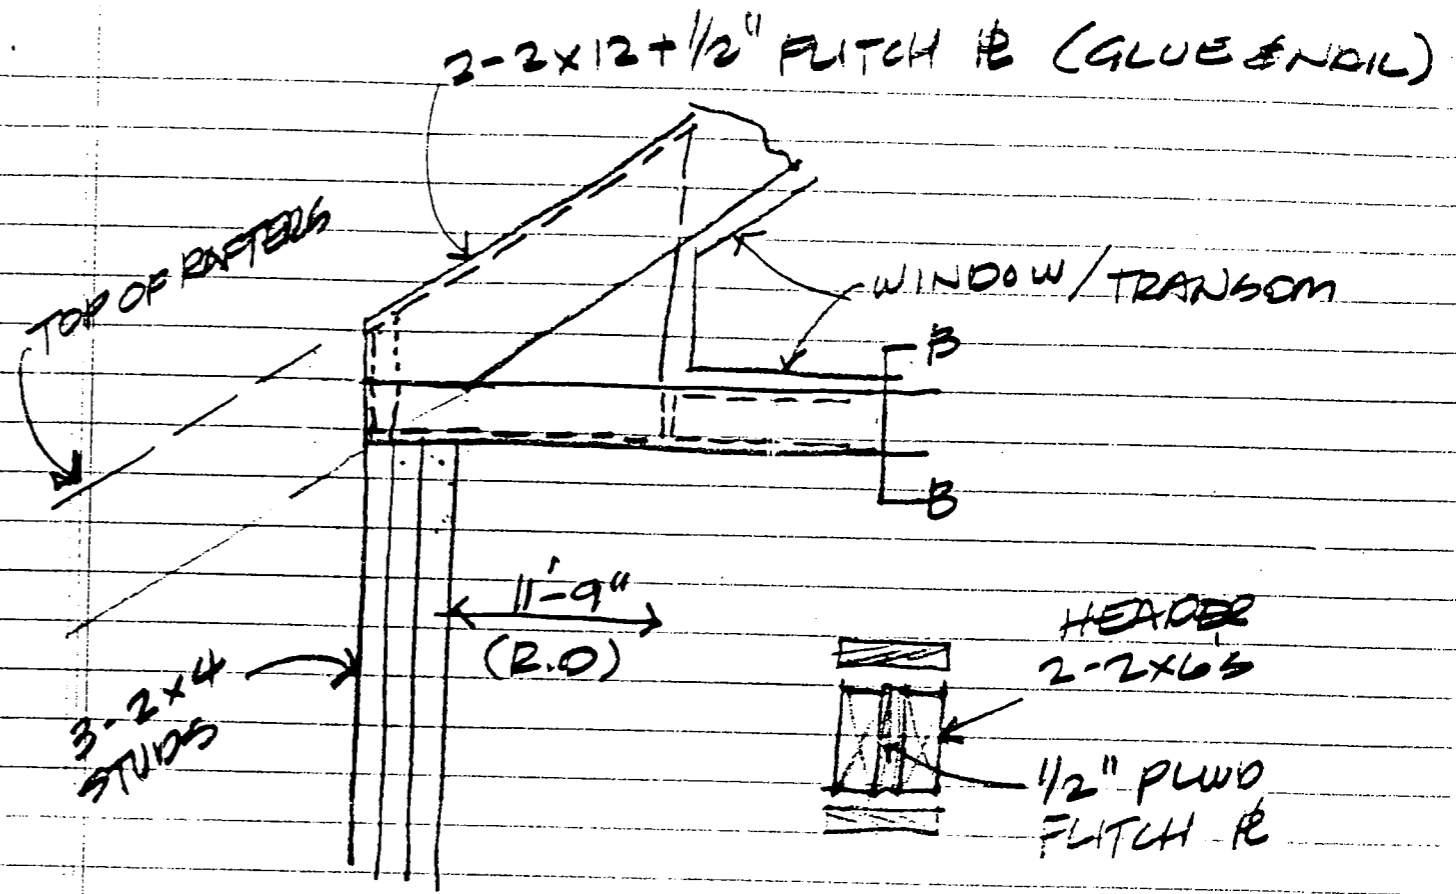 2-2x12+1/2" FLITCH PL (GLUE & NAIL)
TOP OF RAFTERS
WINDOW/TRANSOM
B
B
11'-9"
(R.O)
3-2x4
STUDS
HEADER
2-2x6's
1/2" PLWD
FLITCH PL